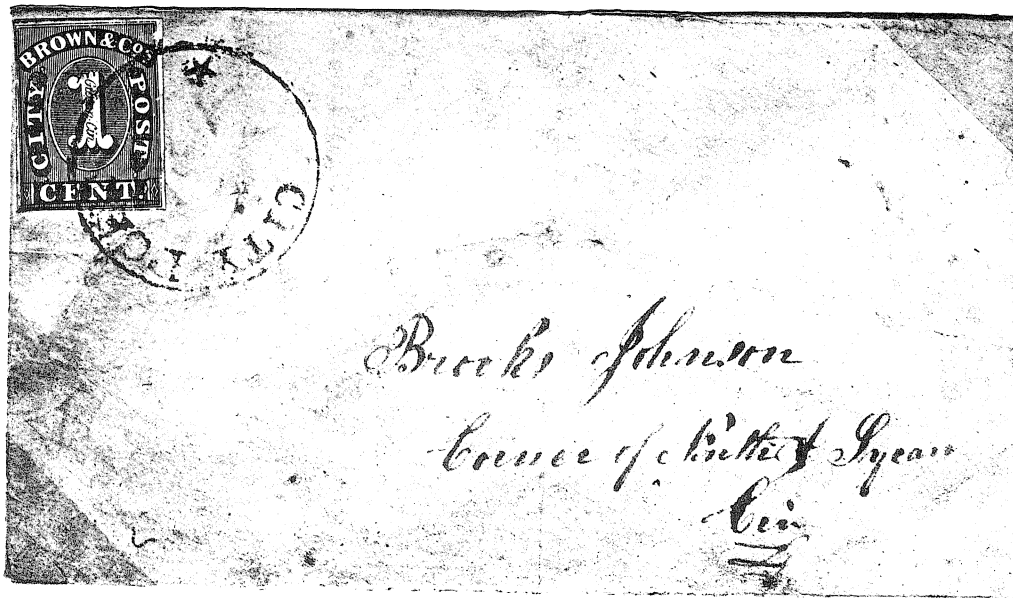 BROWN & CO'S
CITY POST
1
CENT.
CITY PO
Brooks Johnson
Corner of & Sycam
Cin